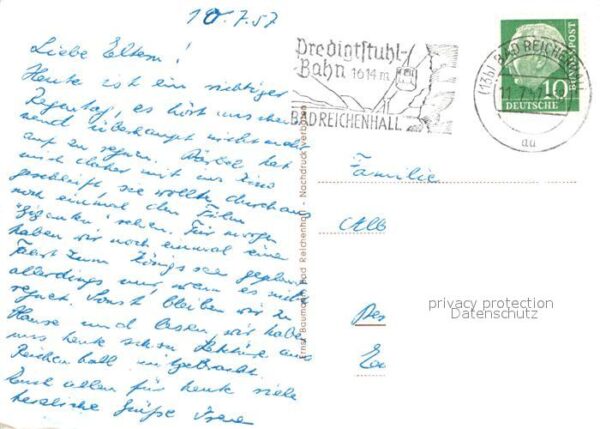 10.7.57
Liebe Eltern!
Heute ist ein richtiger
Regentag, es hört anscheinend
überhaupt nicht mehr
auf zu regnen. Bärbel hat
mich daher mit ins Kino
geschleift, sie wollte durchaus
noch einmal den Film
"Giganten" sehen. Für morgen
haben wir noch einmal eine
Fahrt zum Königssee geplant,
allerdings nur, wenn es nicht
regnet. Sonst bleiben wir zu
Hause und lesen, wir haben
uns heute schon Lektüre aus
Reichenhall mitgebracht.
Euch allen für heute viele
herzliche Grüße
Predigtstuhl-
Bahn 1614 m
BAD REICHENHALL
(13b) BAD REICHENHALL
11.7.57
au
10
DEUTSCHE
BUNDESPOST
Ernst Baumann Bad Reichenhall - Nachdruck verboten
Familie
Alb
privacy protection
Datenschutz